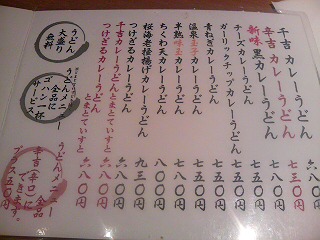 千吉 カレーうどん 六八〇円
辛吉 カレーうどん 七三〇円
新味 黒カレーうどん 七八〇円
チーズカレーうどん
ガーリックチップカレーうどん
青ねぎカレーうどん
温泉玉子カレーうどん
半熟味玉カレーうどん
ちくわ天カレーうどん 八〇〇円
桜海老掻揚げカレーうどん 九三〇円
つけざるカレーうどん 六八〇円
千吉カレーうどんとまとていすと
つけざるカレーうどんとまとていすと
うどん
大盛り
無料
うどんメニュー
全品に
ゴハン一杯
サービス
うどんメニュー
全品
辛吉(辛口)に
できます。
プラス五〇円